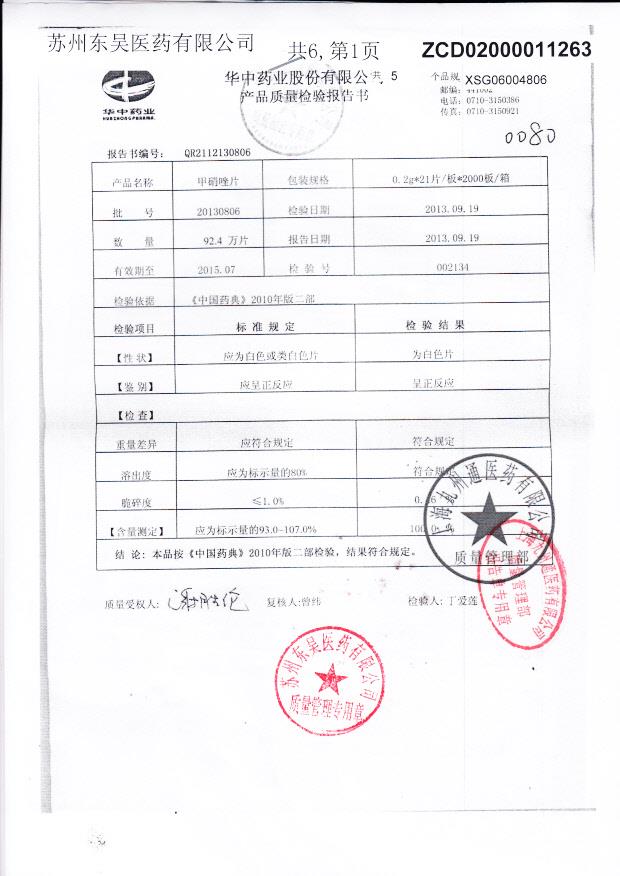 苏州东吴医药有限公司 共6,第1页 ZCD02000011263
华中药业股份有限公司 共 5 个品规 XSG06004806
产品质量检验报告书 邮编: 441002
华中药业 电话: 0710-3150386
HUAZHONG PHARMA. 传真: 0710-3150921
0080
报告书编号: QR2112130806
产品名称 甲硝唑片 包装规格 0.2g*21片/板*2000板/箱
批 号 20130806 检验日期 2013.09.19
数 量 92.4 万片 报告日期 2013.09.19
有效期至 2015.07 检 验 号 002134
检验依据 《中国药典》2010年版二部
检验项目 标 准 规 定 检 验 结 果
【性 状】 应为白色或类白色片 为白色片
【鉴 别】 应呈正反应 呈正反应
【检 查】
重量差异 应符合规定 符合规定
溶出度 应为标示量的80% 符合规
脆碎度 ≤1.0% 0.
【含量测定】 应为标示量的93.0-107.0% 100.0
结 论: 本品按《中国药典》2010年版二部检验, 结果符合规定。
上海九州通医药有限公司
质量管理部
上海九州通医药有限公司
质量管理部
质量受权人: 复核人:曾纬 检验人: 丁爱莲
苏州东吴医药有限公司
质量管理专用章